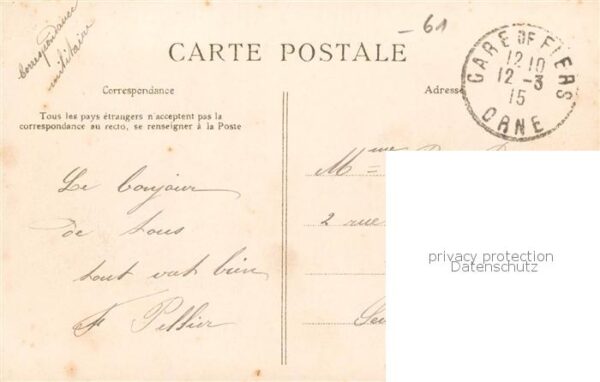 Correspondance
militaire
- 61
CARTE POSTALE
GARE DE FLERS
12 10
12 -3
15
ORNE
Correspondance
Adresse
Tous les pays étrangers n'acceptent pas la
correspondance au recto, se renseigner à la Poste
Mme
Le bonjour
de tous
tout vat bien
2 rue
privacy protection
Datenschutz